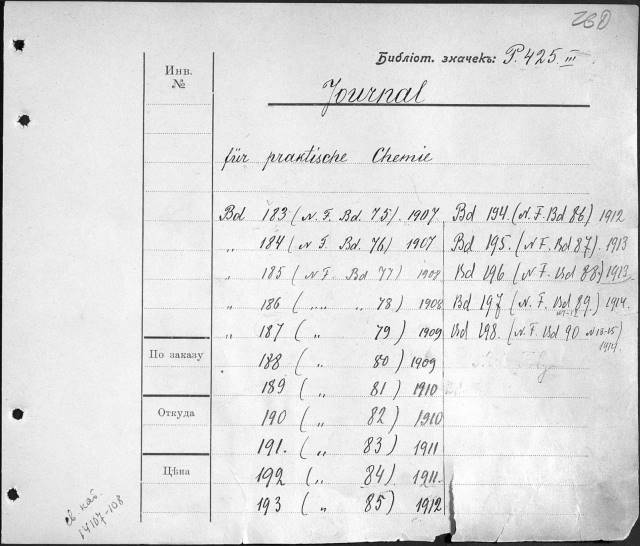 Библіот. значекъ: P. 425. III
Инв.
№
Journal
für praktische Chemie
Bd 183 (N. F. Bd. 75). 1907
„ 184 (N. F. Bd. 76) 1907
„ 185 (N F. Bd 77) 1908
„ 186 („ „ „ 78) 1908
„ 187 („ 79) 1909
188 („ 80) 1909
189 („ 81) 1910
190 („ 82) 1910
191. („ 83) 1911
192 („ 84). 1911.
193 („ 85) 1912
Bd 194. (N. F. Bd 86) 1912
Bd 195. (N F. Bd 87). 1913
Bd 196 (N F. Bd 88) 1913.
Bd 197 (N. F. Bd 89.) 1914.
Bd 198. (N. F. Bd 90 N 13-15)
1914
По заказу
Откуда
Цѣна
св. кат.
14107-108